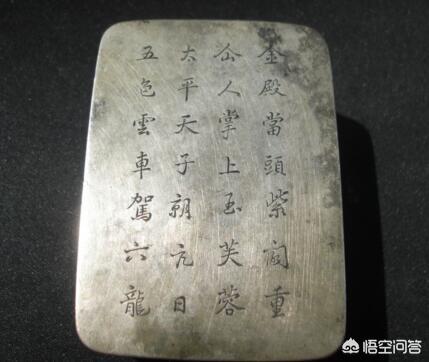 金殿當頭紫閣重
仚人掌上玉芙蓉
太平天子朝元日
五色雲車駕六龍
悟空问答